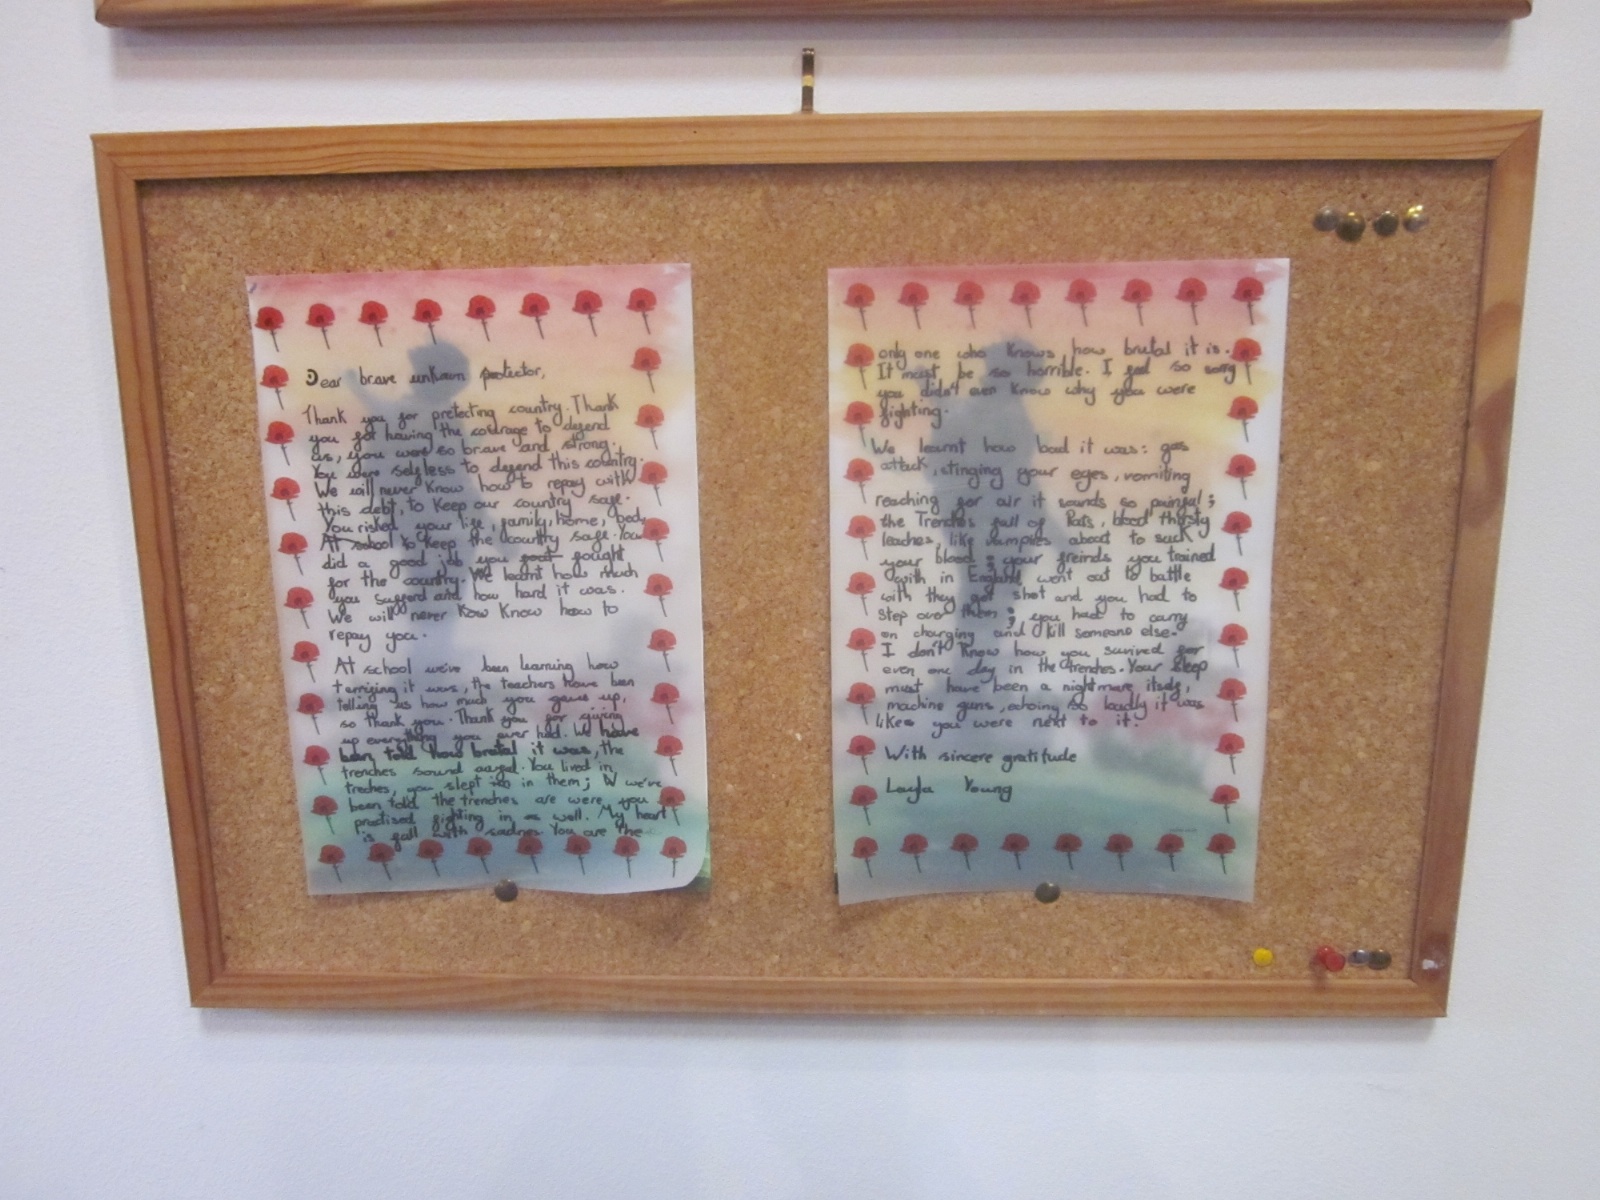 Dear brave unkown protector,
Thank you for pretecting country. Thank
you for having the courage to defend
us, you were so brave and strong.
You were selfless to defend this country.
We will never Know how to repay with
this debt, to Keep our country safe.
You risked your life, family, home, bed,
At school to Keep the country safe. You
did a good job you goat fought
for the country. We learnt how much
you sufferd and how hard it was.
We will never Kow Know how to
repay you.
At school we've been learning how
terrifying it was, the teachers have been
telling us how much you gave up,
so thank you. Thank you for giving
up everything you ever had. We have
been told how brutal it was, the
trenches sound awful. You lived in
treches, you slept in them; W we've
been told the trenches are were you
practised fighting in as well. My heart
is full with sadnes. You are the
only one who Knows how brutal it is.
It must be so horrible. I feel so sorry
you didn't even Know why you were
fighting.
We learnt how bad it was: gas
attack, stinging your eyes, vomiting
reaching for air it sounds so painful;
the Trenches full of Rats, blood thirsty
leaches, like vampires about to suck
your blood; your freinds you trained
with in England went out to battle
with they got shot and you had to
step over them; you had to carry
on charging and Kill someone else.
I don't Know how you survived for
even one day in the trenches. Your sleep
must have been a nightmare itself,
machine guns, echoing so loudly it was
like you were next to it.
With sincere gratitude
Layla Young